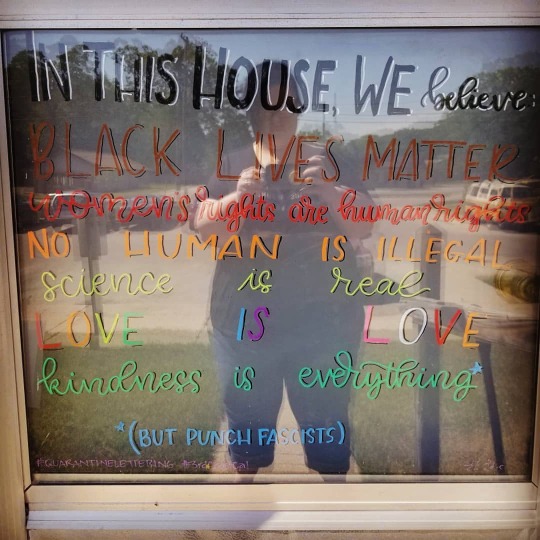 IN THIS HOUSE, WE believe:
BLACK LIVES MATTER
women's rights are human rights
NO HUMAN IS ILLEGAL
science is real
LOVE IS LOVE
kindness is everything*
*(BUT PUNCH FASCISTS)
#QUARANTINELETTERING